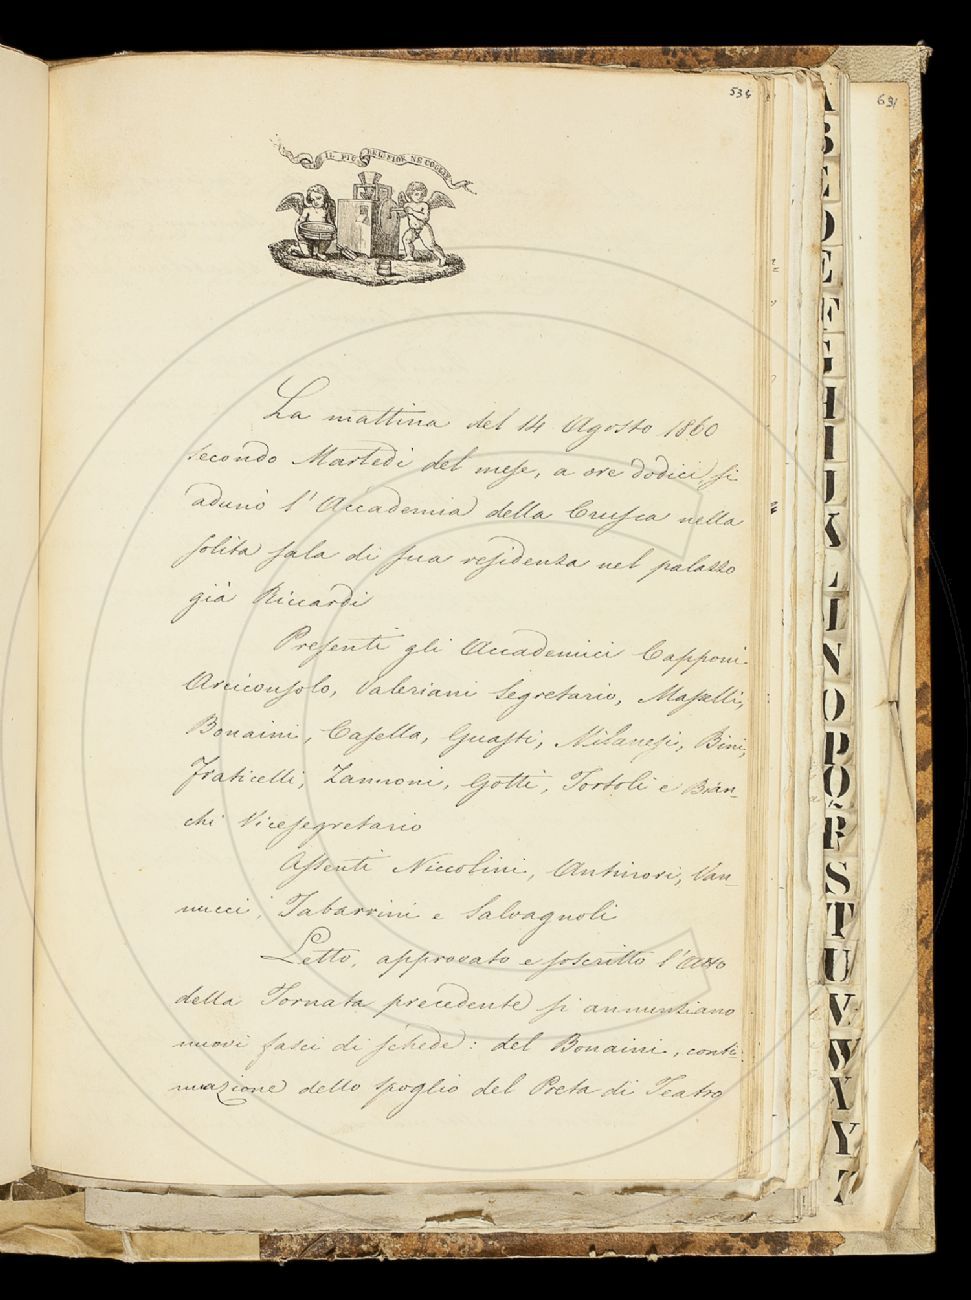 534
691
IL PIÙ BEL FIOR NE COGLIE
La mattina del 14 Agosto 1860
secondo Martedì del mese, a ore dodici, si
adunò l'Accademia della Crusca nella
solita sala di sua residenza nel palazzo
già Riccardi
Presenti gli Accademici Capponi
Arciconsolo, Valeriani Segretario, Maselli,
Bonaini, Casella, Guasti, Milanesi, Bini,
Fraticelli, Zannoni, Gotti, Tortoli e Bian-
chi Vicesegretario
Assenti Niccolini, Antinori, Van-
nucci, Tabarrini e Salvagnoli
Letto, approvato e soscritto l'Atto
della Tornata precedente si annunziano
nuovi fasci di schede: del Bonaini, conti-
nuazione dello spoglio del Preta di Teatro
A
B
E
D
E
F
G
H
I
J
K
L
N
O
P
Q
R
S
T
U
V
W
X
Y
Z